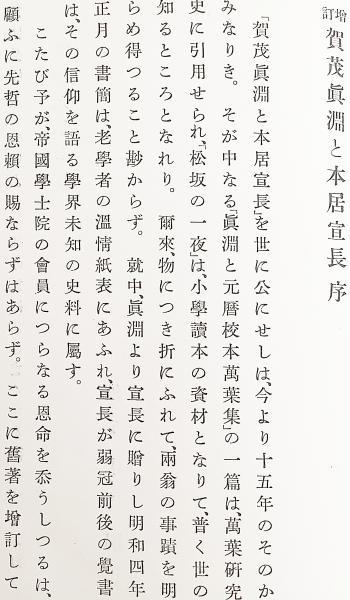 增訂 賀茂眞淵と本居宣長 序
「賀茂眞淵と本居宣長」を世に公にせしは、今より十五年のそのか
みなりき。そが中なる「眞淵と元曆校本萬葉集」の一篇は、萬葉硏究
史に引用せられ、「松坂の一夜」は、小學讀本の資材となりて、普く世の
知るところとなれり。爾來、物につき折にふれて、兩翁の事蹟を明
らめ得つること尠からず。就中、眞淵より宣長に贈りし明和四年
正月の書簡は、老學者の溫情紙表にあふれ、宣長が弱冠前後の覺書
は、その信仰を語る學界未知の史料に屬す。
こたび予が、帝國學士院の會員につらなる恩命を忝うしつるは、
顧ふに先哲の恩賴の賜ならずはあらず。ここに舊著を增訂して